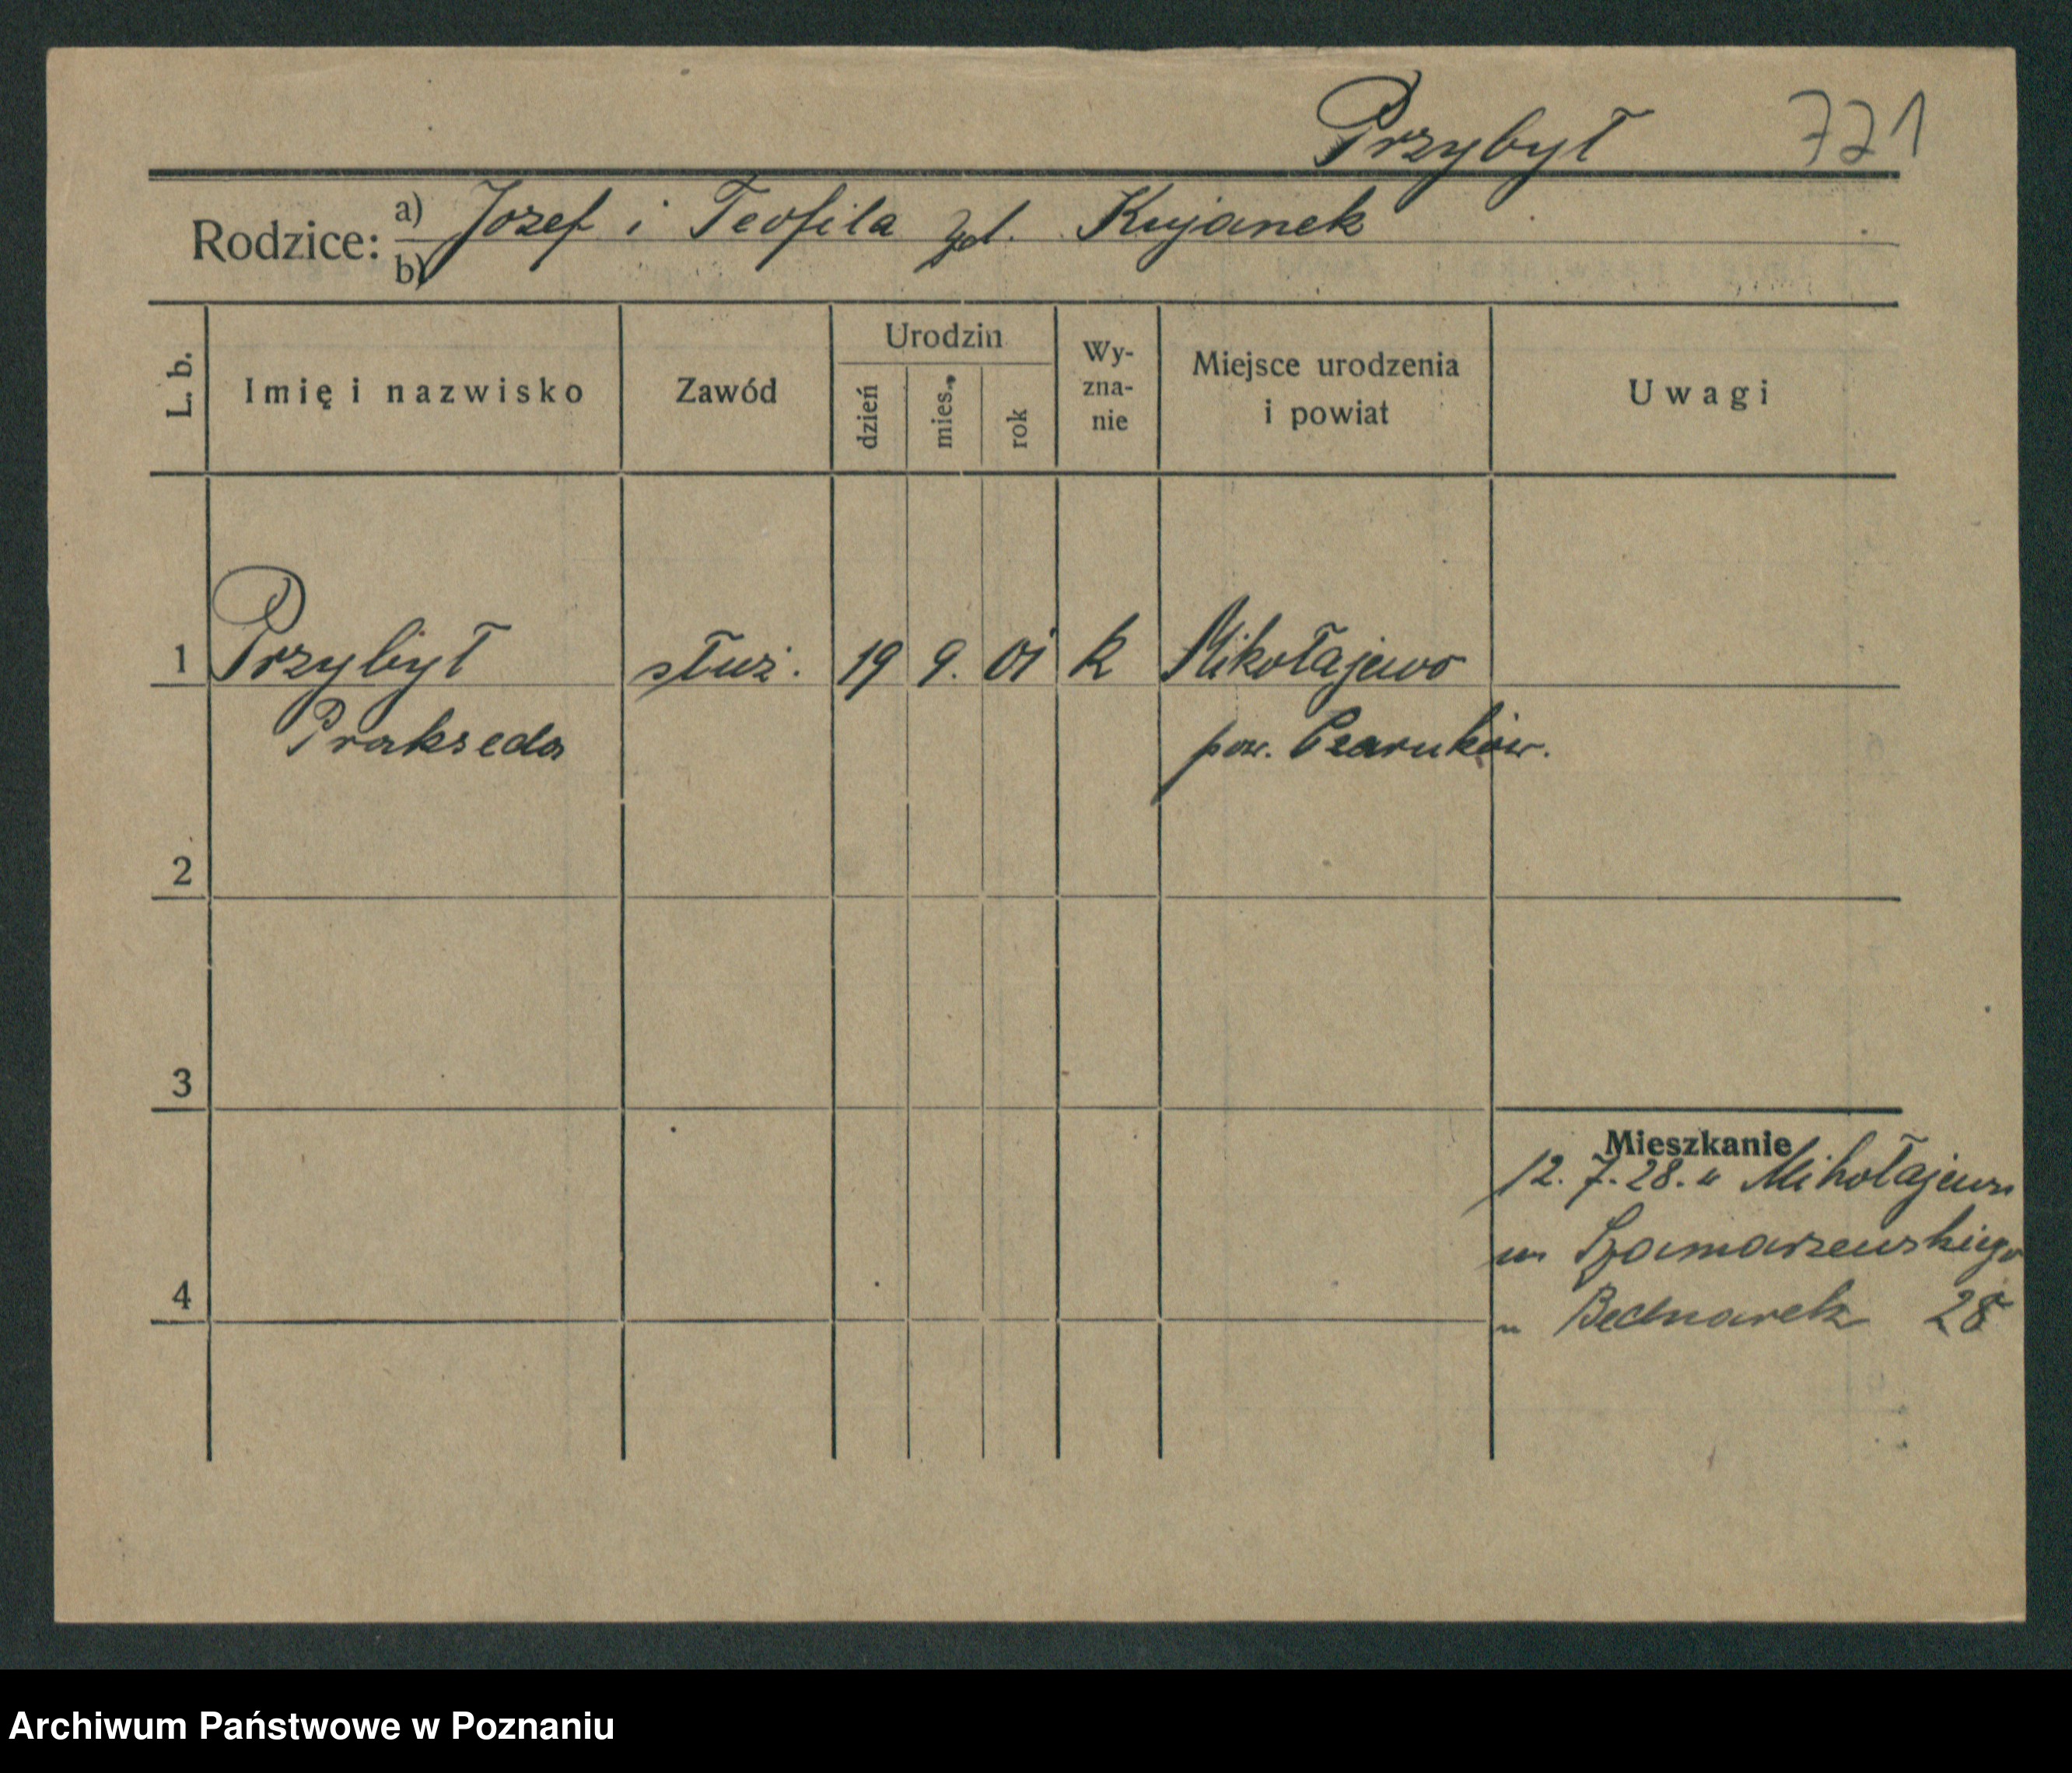 Przybył 721
Rodzice: a) Jozef i Teofila zd. Kujanek
b)
L. b. Imię i nazwisko Zawód Urodzin dzień mies. rok Wy-zna-nie Miejsce urodzenia i powiat Uwagi
1 Przybył służ. 19 9. 01 k Mikołajewo
Prakseda pow. Czarnków.
2
3
Mieszkanie
12. 7. 28. Mikołajewo
Szamarzewskiego
4
Bednarek 28
Archiwum Państwowe w Poznaniu